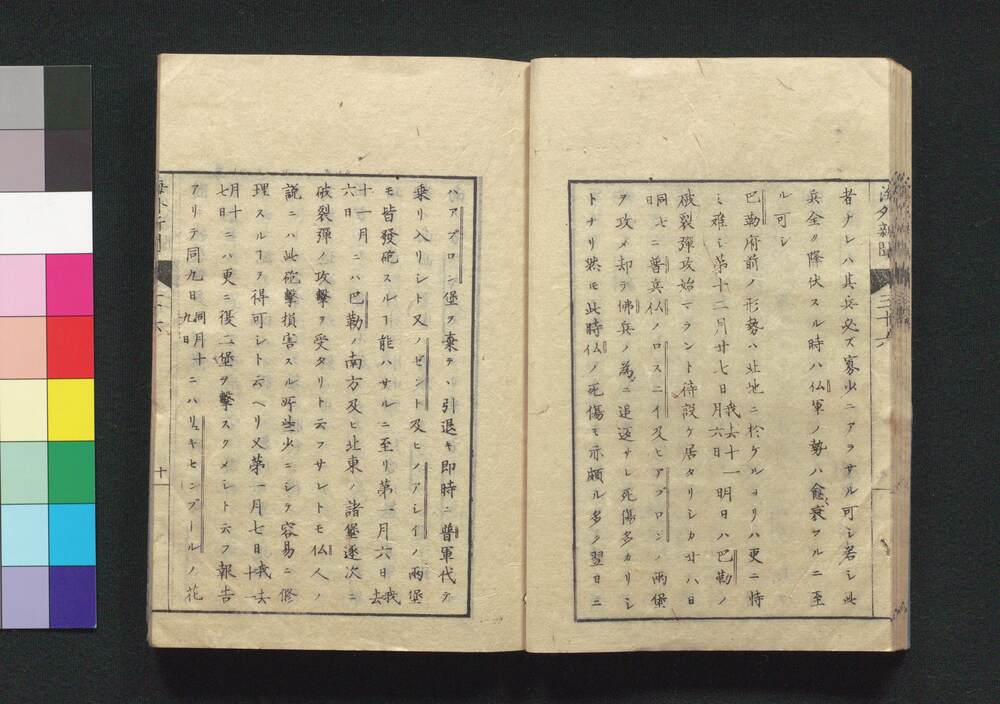 海外新聞 三十六
者ナレハ其兵必ス寡少ニアラサル可シ若シ此
兵全ク降伏スル時ハ仏軍ノ勢ハ愈々衰フルニ至
ル可シ
巴勒府前ノ形勢ハ北地ニ於ケルヨリハ更ニ恃
ミ難シ第十二月廿七日我去十一月六日明日ハ巴勒ノ
破裂弾攻始マラント待設ケ居タリシカ廿八日
同七ニ普兵仏ノロスニイ及ヒアブロンノ両堡
ヲ攻メ却テ仏兵ノ為ニ追返サレ死傷多カリシ
トナリ然モ此時仏ノ死傷モ亦頗ル多ク翌日ニ
ハアブロン堡ヲ棄テヽ引退キ即時ニ普軍代テ
乗リ入リシト又ノゼント及ヒノアシイノ両堡
モ皆発砲スル能ハサルニ至リ第一月六日我去
十一月六日ニハ巴勒ノ南方及ヒ北東ノ諸堡逐次ニ
破裂弾ノ攻撃ヲ受タリト云フサレトモ仏人ノ
説ニハ此砲撃損害スル所些少ニシテ容易ニ修
理スルヿヲ得可シト云ヘリ又第一月七日我去十一
月十七日ニハ更ニ復二堡ヲ撃スクメシト云フ報告
アリテ同九日同月十九日ニハリュキセンブールノ花
海外新聞 三十六 十